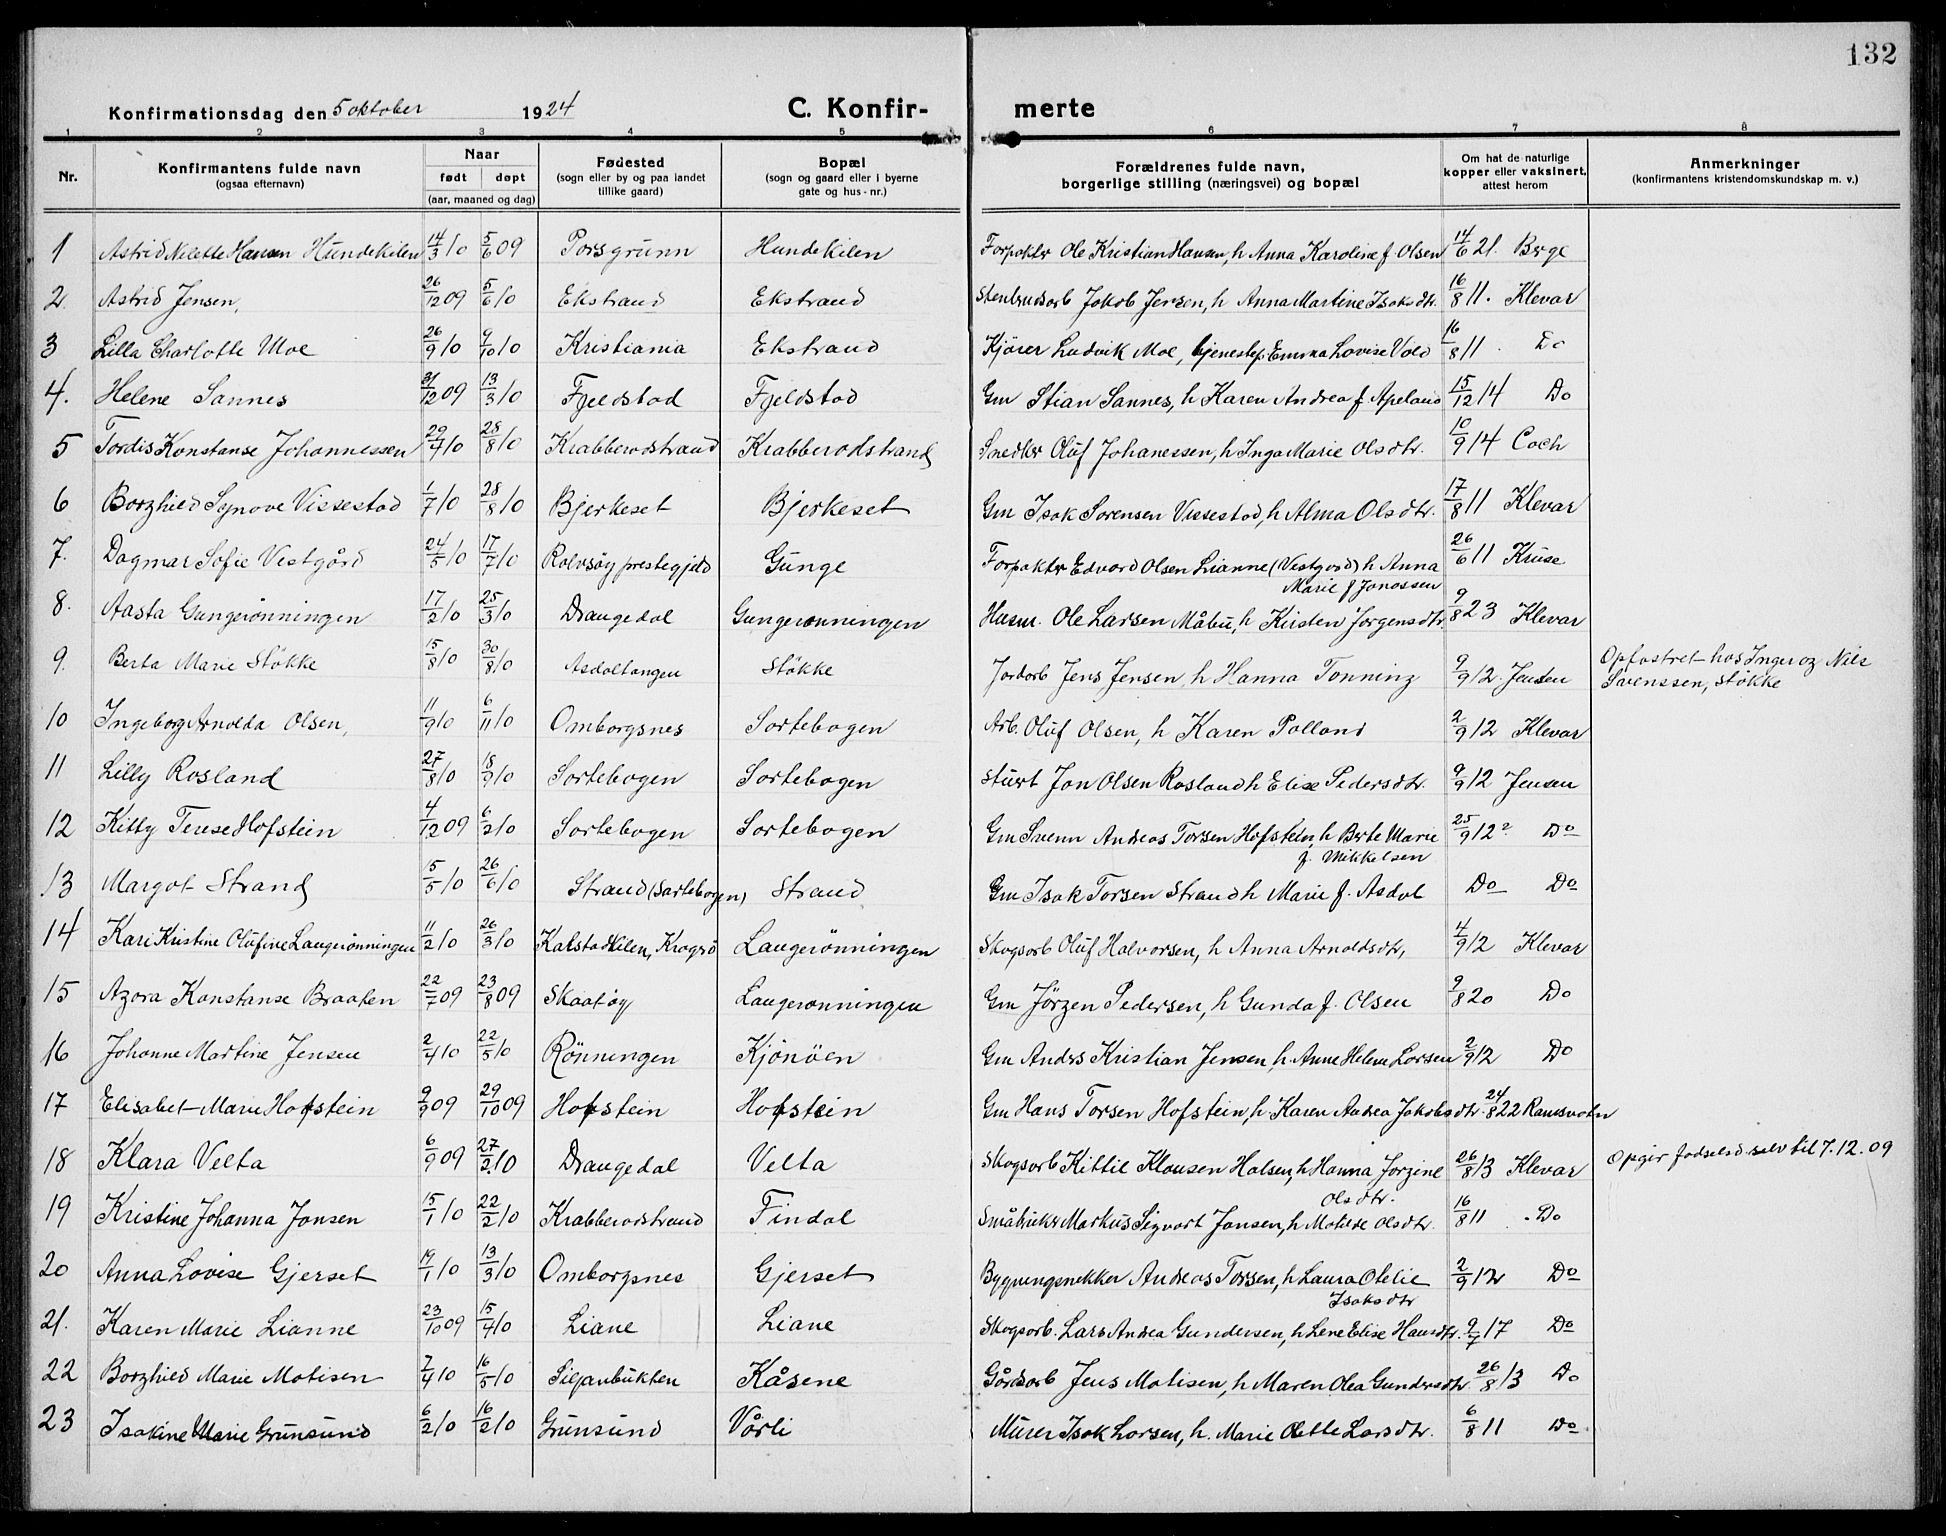 132
Konfirmationsdag den 5 oktober 1924 C. Konfir- merte
1 2 3 4 5 6 7 8
Nr. Konfirmantens fulde navn (ogsaa efternavn) Naar født døpt (aar, maaned og dag) Fødested (sogn eller by og paa landet tillike gaard) Bopæl (sogn og gaard eller i byerne gate og hus-nr.) Forældrenes fulde navn, borgerlige stilling (næringsvei) og bopæl Om hat de naturlige kopper eller vaksinert, attest herom Anmerkninger (konfirmantens kristendomskundskap m. v.)
1 Astrid Nilette Hansen Hundekilen 14/3 10 5/6 09 Porsgrunn Hundekilen Forpakter Ole Kristian Hansen, h Anna Karoline f Olsen 14/6 21. Berge
2 Astrid Jensen, 26/12 09 5/6 10 Ekstrand Ekstrand Stenhudsarb Jakob Jensen, h Anna Martine Isaksdtr. 16/8 11. Klevar
3 Lilla Charlotte Moe 26/9 10 9/10 10 Kristiania Ekstrand Kjører Ludvik Moe, tjenestep. Emma Lovise Vold 16/8 11. Do
4. Helene Sannes 31/12 09 13/3 10 Fjeldstad Fjeldstad Gm Stian Sannes, h Karen Andrea f Apeland 15/12 14 Do
5 Tordis Konstanse Johannessen 29/7 10 28/8 10 Krabberødstrand Krabberødstrand Snedker Oluf Johanessen, h Inga Marie Olsdtr. 10/9 14 Coch
6 Borghild Synove Vissestad 1/7 10 28/8 10 Bjerkeset Bjerkeset Gm Isak Sorensen Vissestad, h Alma Olsdtr. 17/8 11 Klevar
7. Dagmar Sofie Vestgård 24/5 10 17/7 10 Rolvsøy prestegjeld Gunge Forpakter Edvard Olsen Lianne (Vestgård) h Anna Marie f Jonassen 26/6 11 Kruse
8. Aasta Gungerønningen 17/2 10 25/3 10 Drangedal Gungerønningen Husm. Ole Larsen Måbu, h Kirsten Jørgensdtr 9/8 23 Klevar
9. Berta Marie Støkke 15/8 10 30/8 10 Asdaltangen Støkke Jordarb Jens Jensen, h Hanna Tonning 9/9 12. Jensen Opfostret hos Inger og Nils Sørenssen, Støkke
10 Ingeborg Arnolda Olsen, 11/9 10 6/11 10 Omborgsnes Sortebogen Arb. Oluf Olsen, h Karen Polland 2/9 12 Klevar
11 Lilly Rosland 27/8 10 18/9 10 Sortebogen Sortebogen Stuert Jon Olsen Rosland h Elise Pedersdtr. 9/9 12 Jensen
12 Kitty Terese Hofstein 4/12 09 6/2 10 Sortebogen Sortebogen Gm Svenn Andreas Torsen Hofstein, h Berte Marie f. Mikkelsen 25/9 12? Do
13 Margot Strand 15/5 10 26/6 10 Strand (Sortebogen) Strand Gm Isak Torsen Strand h Marie f. Asdal Do Do
14 Kari Kristine Olufine Laugerønningen 11/2 10 26/3 10 Kalstadkilen, Kragerø Laugerønningen Skogsarb Oluf Halvorsen, h Anna Arnoldsdtr, 4/9 12 Klevar
15 Azora Konstanse Braaten 22/7 09 23/8 09 Skaatøy Laugerønningen Gm Jørgen Pedersen, h Gunda f. Olsen 9/8 20 Do
16 Johanne Martine Jensen 2/4 10 22/5 10 Rønningen Kjønøen Gm Anders Kristian Jensen, h. Anne Helene Larsen 2/9 12 Do
17 Elisabet Marie Hofstein 9/9 09 29/10 09 Hofstein Hofstein Gm Hans Torsen Hofstein, h. Karen Andrea Jakobsdtr. 24/8 22 Ramsvatn
18 Klara Velta 6/9 09 27/2 10 Drangedal Velta Skogsarb Kittil Klausen Halsen, h Hanna Jorgine Olsdtr. 26/8 13 Klevar Opgir fødselsd selv til 7.12.09
19 Kristine Johanna Jansen 15/1 10 22/2 10 Krabberødstrand Findal Småbruker Markus Sigvart Jansen, h Matilde Olsdtr. 16/8 11 . Do
20 Anna Lovise Gjerset 19/1 10 13/3 10 Omborgsnes Gjerset Bygningsnekker Andreas Torsen, h Laura Otelie Isaksdtr 2/9 12 Do
21. Karen Marie Lianne 23/10 09 15/4 10 Liane Liane Skogsarb. Lars Andrea Gundersen, h Lene Elise Hansdtr. 9/7 17 Do
22 Borghild Marie Matisen 7/4 10 16/5 10 Siljanbukten Kåsene Gårdsarb Jens Matisen, h Maren Olea Gundersdtr 26/8 13 Do
23 Isakine Marie Grunsund 6/2 10 16/2 10 Grunsund Vårli Murer Isak Larsen, h. Marie Olette Larsdtr. 6/8 11 Do